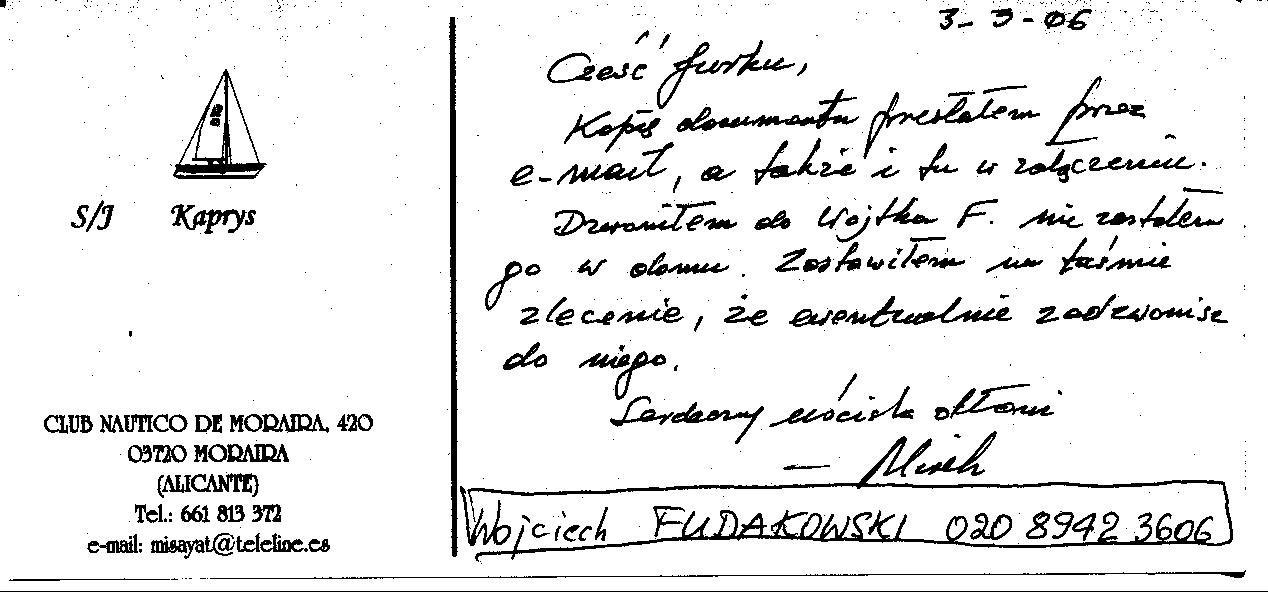 S/J Kaprys
CLUB NAUTICO DE MORAIRA, 420
03720 MORAIRA
(ALICANTE)
Tel.: 661 813 372
e-mail: misayat@teleline.es
3-3-06
Cześć Jurku,
Kopię documentu przesłałem przez
e-mail, a także i tu w załączeniu.
Dzwoniłem do Wojtka F. nie zastałem
go w domu. Zostawiłem na taśmie
zlecenie, że ewentualnie zadzwonisz
do niego.
Serdeczny uścisk dłoni
— Mirek
Wojciech FUDAKOWSKI 020 8942 3606